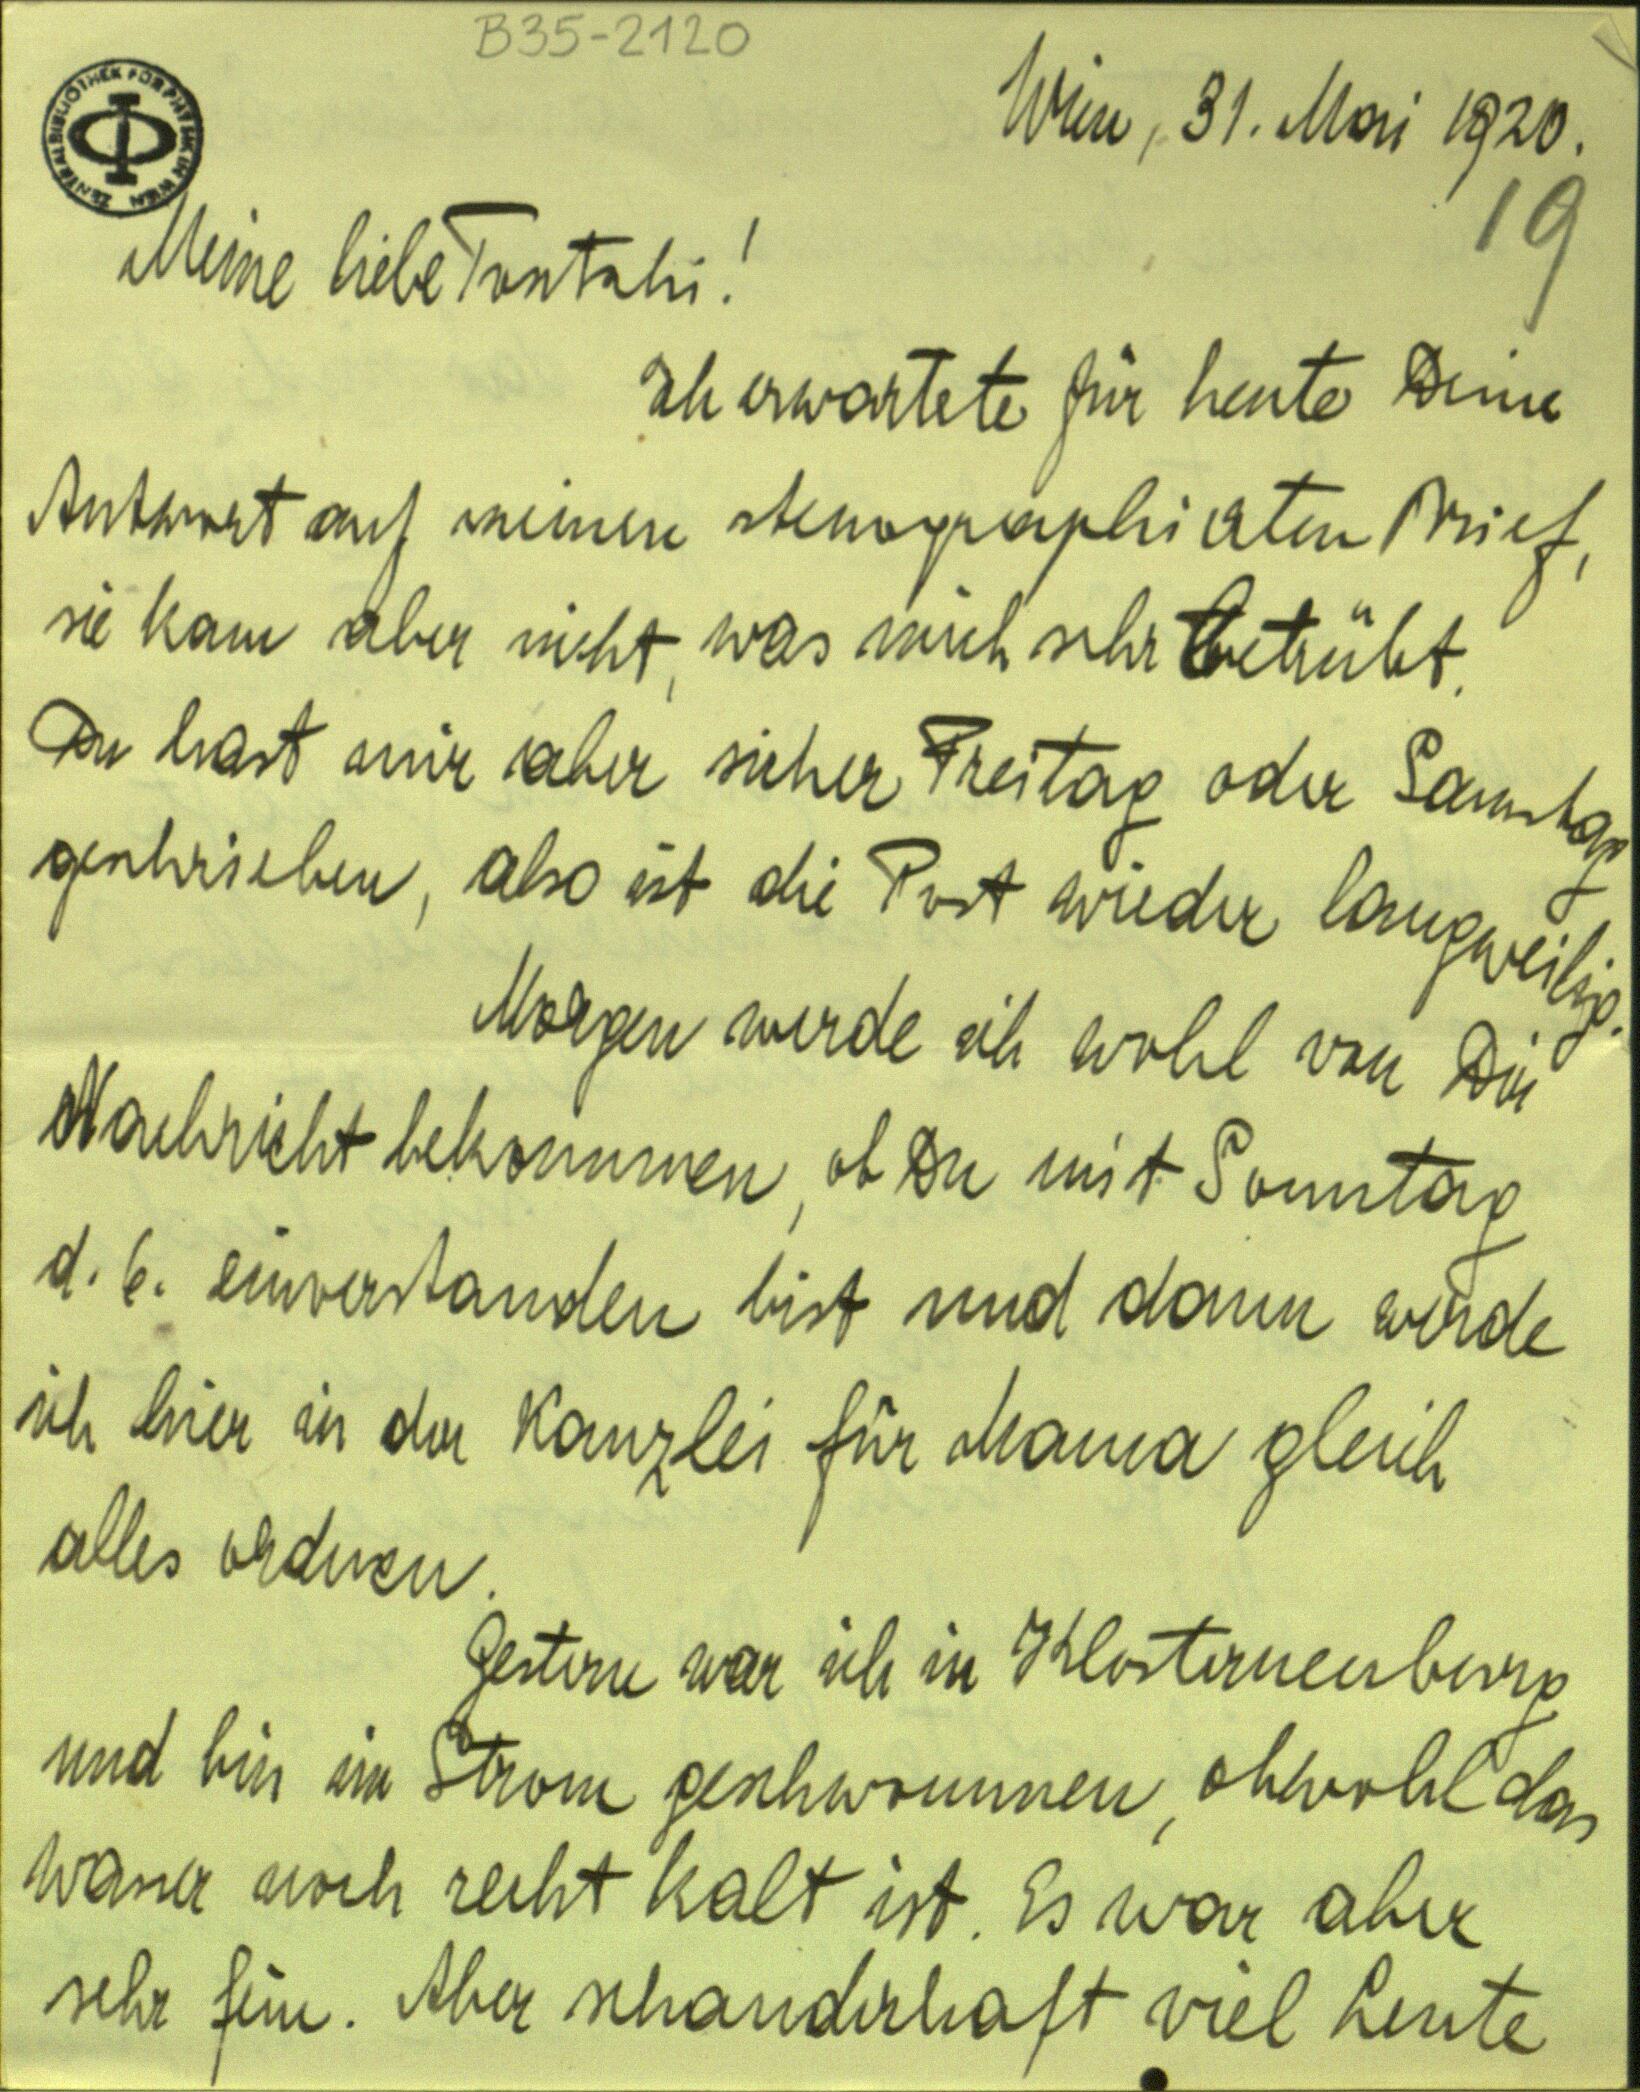 B35-2120
ZENTRALBIBLIOTHEK FÜR PHYSIK IN WIEN
Wien, 31. Mai 1920.
19
Meine liebe Tontschi!
Ich erwartete für heute Deine
Antwort auf meinen stenographierten Brief,
sie kam aber nicht, was mich sehr betrübt.
Du hast mir aber sicher Freitag oder Samstag
geschrieben, also ist die Post wieder langweilig.
Morgen werde ich wohl von Dir
Nachricht bekommen, ob Du mit Sonntag
d. 6. einverstanden bist und dann werde
ich hier in der Kanzlei für Mama gleich
alles ordnen.
Gestern war ich in Klosterneuburg
und bin im Strom geschwommen, obwohl das
Wasser noch recht kalt ist. Es war aber
sehr fein. Aber schauderhaft viel Leute